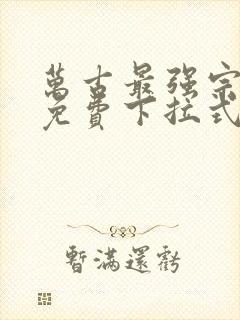 萬古最强宗
免費下拉式
暫滿還虧